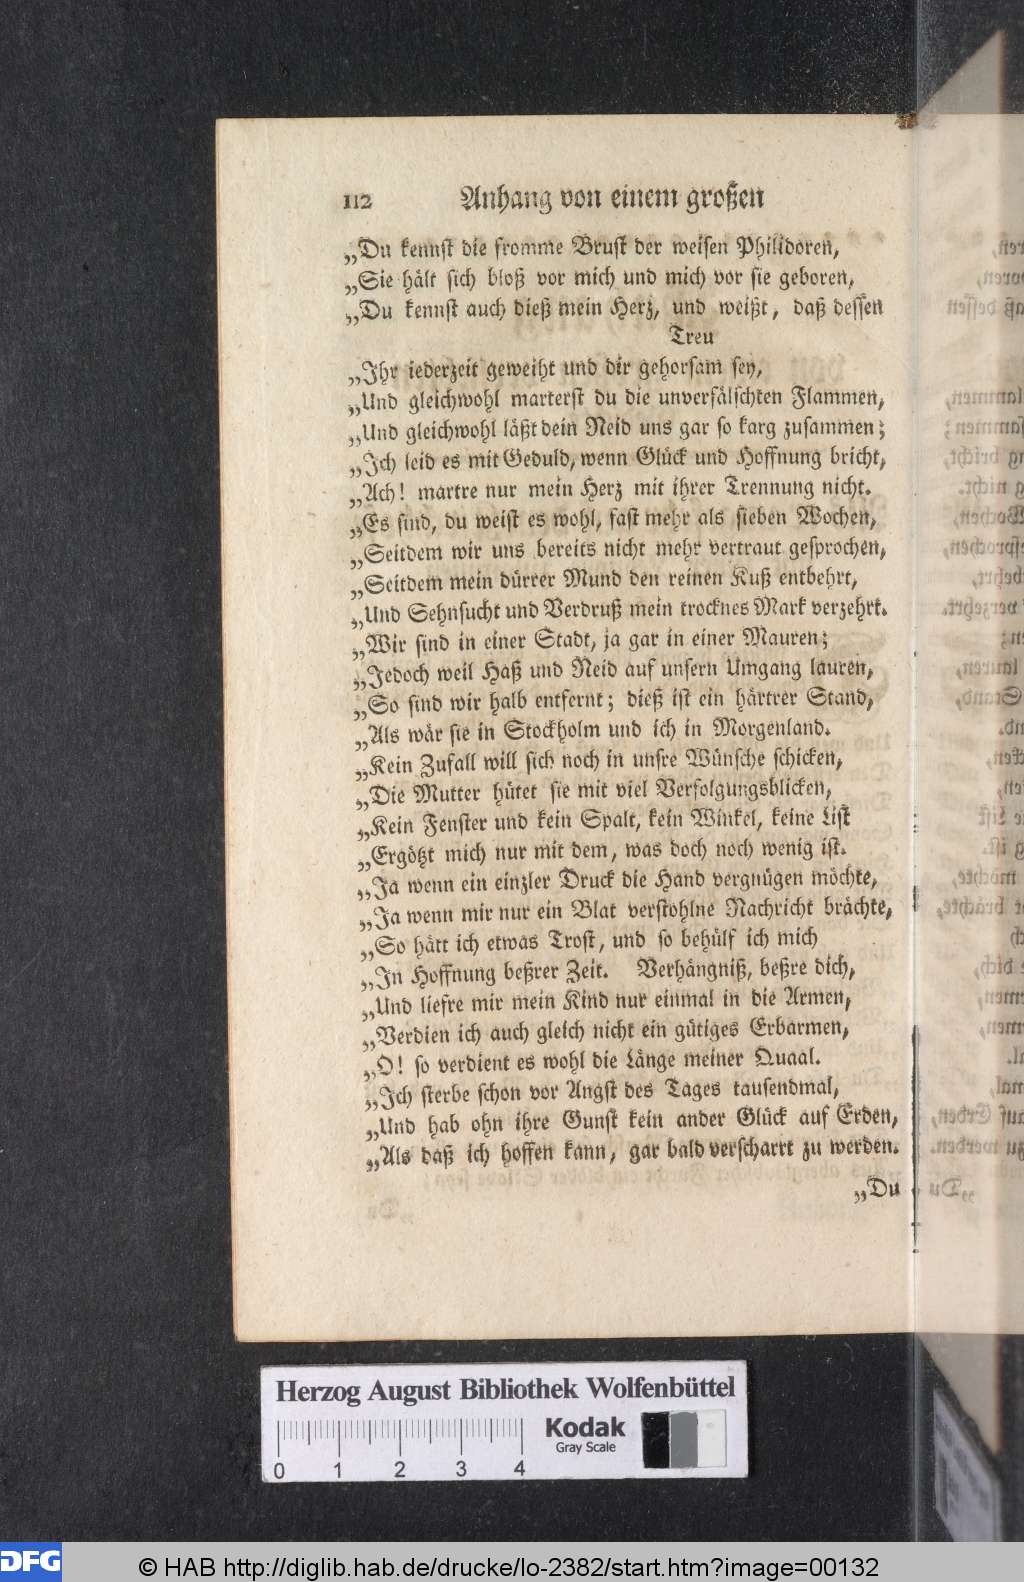 112 Anhang von einem großen
„Du kennst die fromme Brust der weisen Philidoren,
„Sie hält sich bloß vor mich und mich vor sie geboren,
„Du kennst auch dieß mein Herz, und weißt, daß dessen
Treu
„Ihr iederzeit geweiht und dir gehorsam sey,
„Und gleichwohl marterst du die unverfälschten Flammen,
„Und gleichwohl läßt dein Neid uns gar so karg zusammen;
„Ich leid es mit Geduld, wenn Glück und Hoffnung bricht,
„Ach! martre nur mein Herz mit ihrer Trennung nicht.
„Es sind, du weist es wohl, fast mehr als sieben Wochen,
„Seitdem wir uns bereits nicht mehr vertraut gesprochen,
„Seitdem mein dürrer Mund den reinen Kuß entbehrt,
„Und Sehnsucht und Verdruß mein trocknes Mark verzehrt.
„Wir sind in einer Stadt, ja gar in einer Mauren;
„Jedoch weil Haß und Neid auf unsern Umgang lauren,
„So sind wir halb entfernt; dieß ist ein härtrer Stand,
„Als wär sie in Stockholm und ich in Morgenland.
„Kein Zufall will sich noch in unsre Wünsche schicken,
„Die Mutter hütet sie mit viel Verfolgungsblicken,
„Kein Fenster und kein Spalt, kein Winkel, keine List
„Ergötzt mich nur mit dem, was doch noch wenig ist.
„Ja wenn ein einzler Druck die Hand vergnügen möchte,
„Ja wenn mir nur ein Blat verstohlne Nachricht brächte,
„So hätt ich etwas Trost, und so behülf ich mich
„In Hoffnung beßrer Zeit. Verhängniß, beßre dich,
„Und liefre mir mein Kind nur einmal in die Armen,
„Verdien ich auch gleich nicht ein gütiges Erbarmen,
„O! so verdient es wohl die Länge meiner Quaal.
„Ich sterbe schon vor Angst des Tages tausendmal,
„Und hab ohn ihre Gunst kein ander Glück auf Erden,
„Als daß ich hoffen kann, gar bald verscharrt zu werden.
„Du
Herzog August Bibliothek Wolfenbüttel
Kodak
Gray Scale
0 1 2 3 4
DFG
© HAB http://diglib.hab.de/drucke/lo-2382/start.htm?image=00132